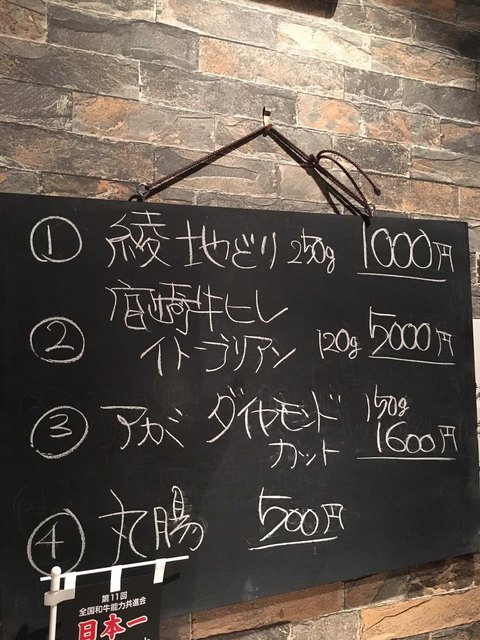 ① 綾地どり 250g 1000円
宮崎牛ヒレ
② イトーブリアン 120g 5000円
③ アカミ ダイヤモンド 150g
カット 1600円
④ 丸腸 500円
第11回
全国和牛能力共進会
日本一